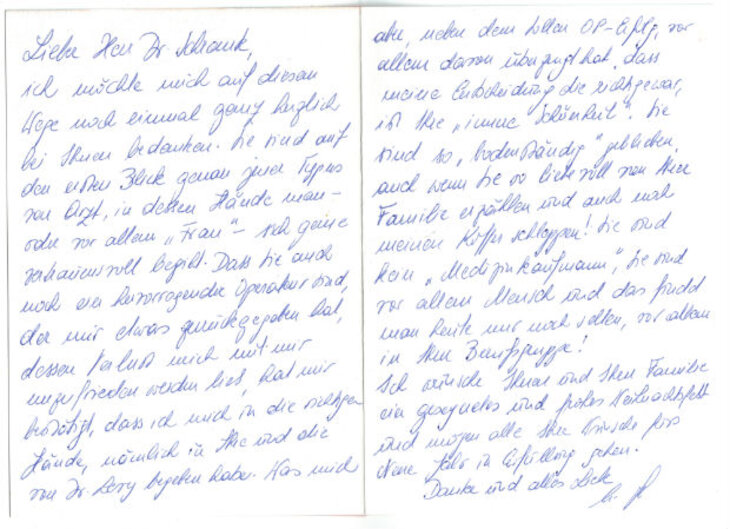 Lieber Herr Dr. Schrank,
ich möchte mich auf diesem
Wege noch einmal ganz herzlich
bei Ihnen bedanken. Sie sind auf
den ersten Blick genau jener Typus
von Arzt, in dessen Hände man –
oder vor allem „Frau“ – sich gerne
vertrauensvoll begibt. Dass Sie auch
noch ein hervorragender Operateur sind,
der mir etwas zurückgegeben hat,
dessen Verlust mich mit mir
unzufrieden werden ließ, hat mir
bestätigt, dass ich mich in die richtigen
Hände, nämlich in Ihre und die
von Dr. Levy begeben habe. Was mich
aber, neben dem tollen OP-Erfolg, vor
allem davon überzeugt hat, dass
meine Entscheidung die richtige war,
ist Ihre „innere Schönheit“. Sie
sind so „bodenständig“ geblieben,
auch wenn Sie so liebevoll von Ihrer
Familie erzählen und auch noch
meinen Koffer schleppen! Sie sind
kein „Medizinkaufmann“, Sie sind
vor allem Mensch und das findet
man heute nur noch selten, vor allem
in Ihrer Berufsgruppe!
Ich wünsche Ihnen und Ihrer Familie
ein gesegnetes und frohes Weihnachtsfest
und mögen alle Ihre Wünsche fürs
Neue Jahr in Erfüllung gehen.
Danke und alles Liebe